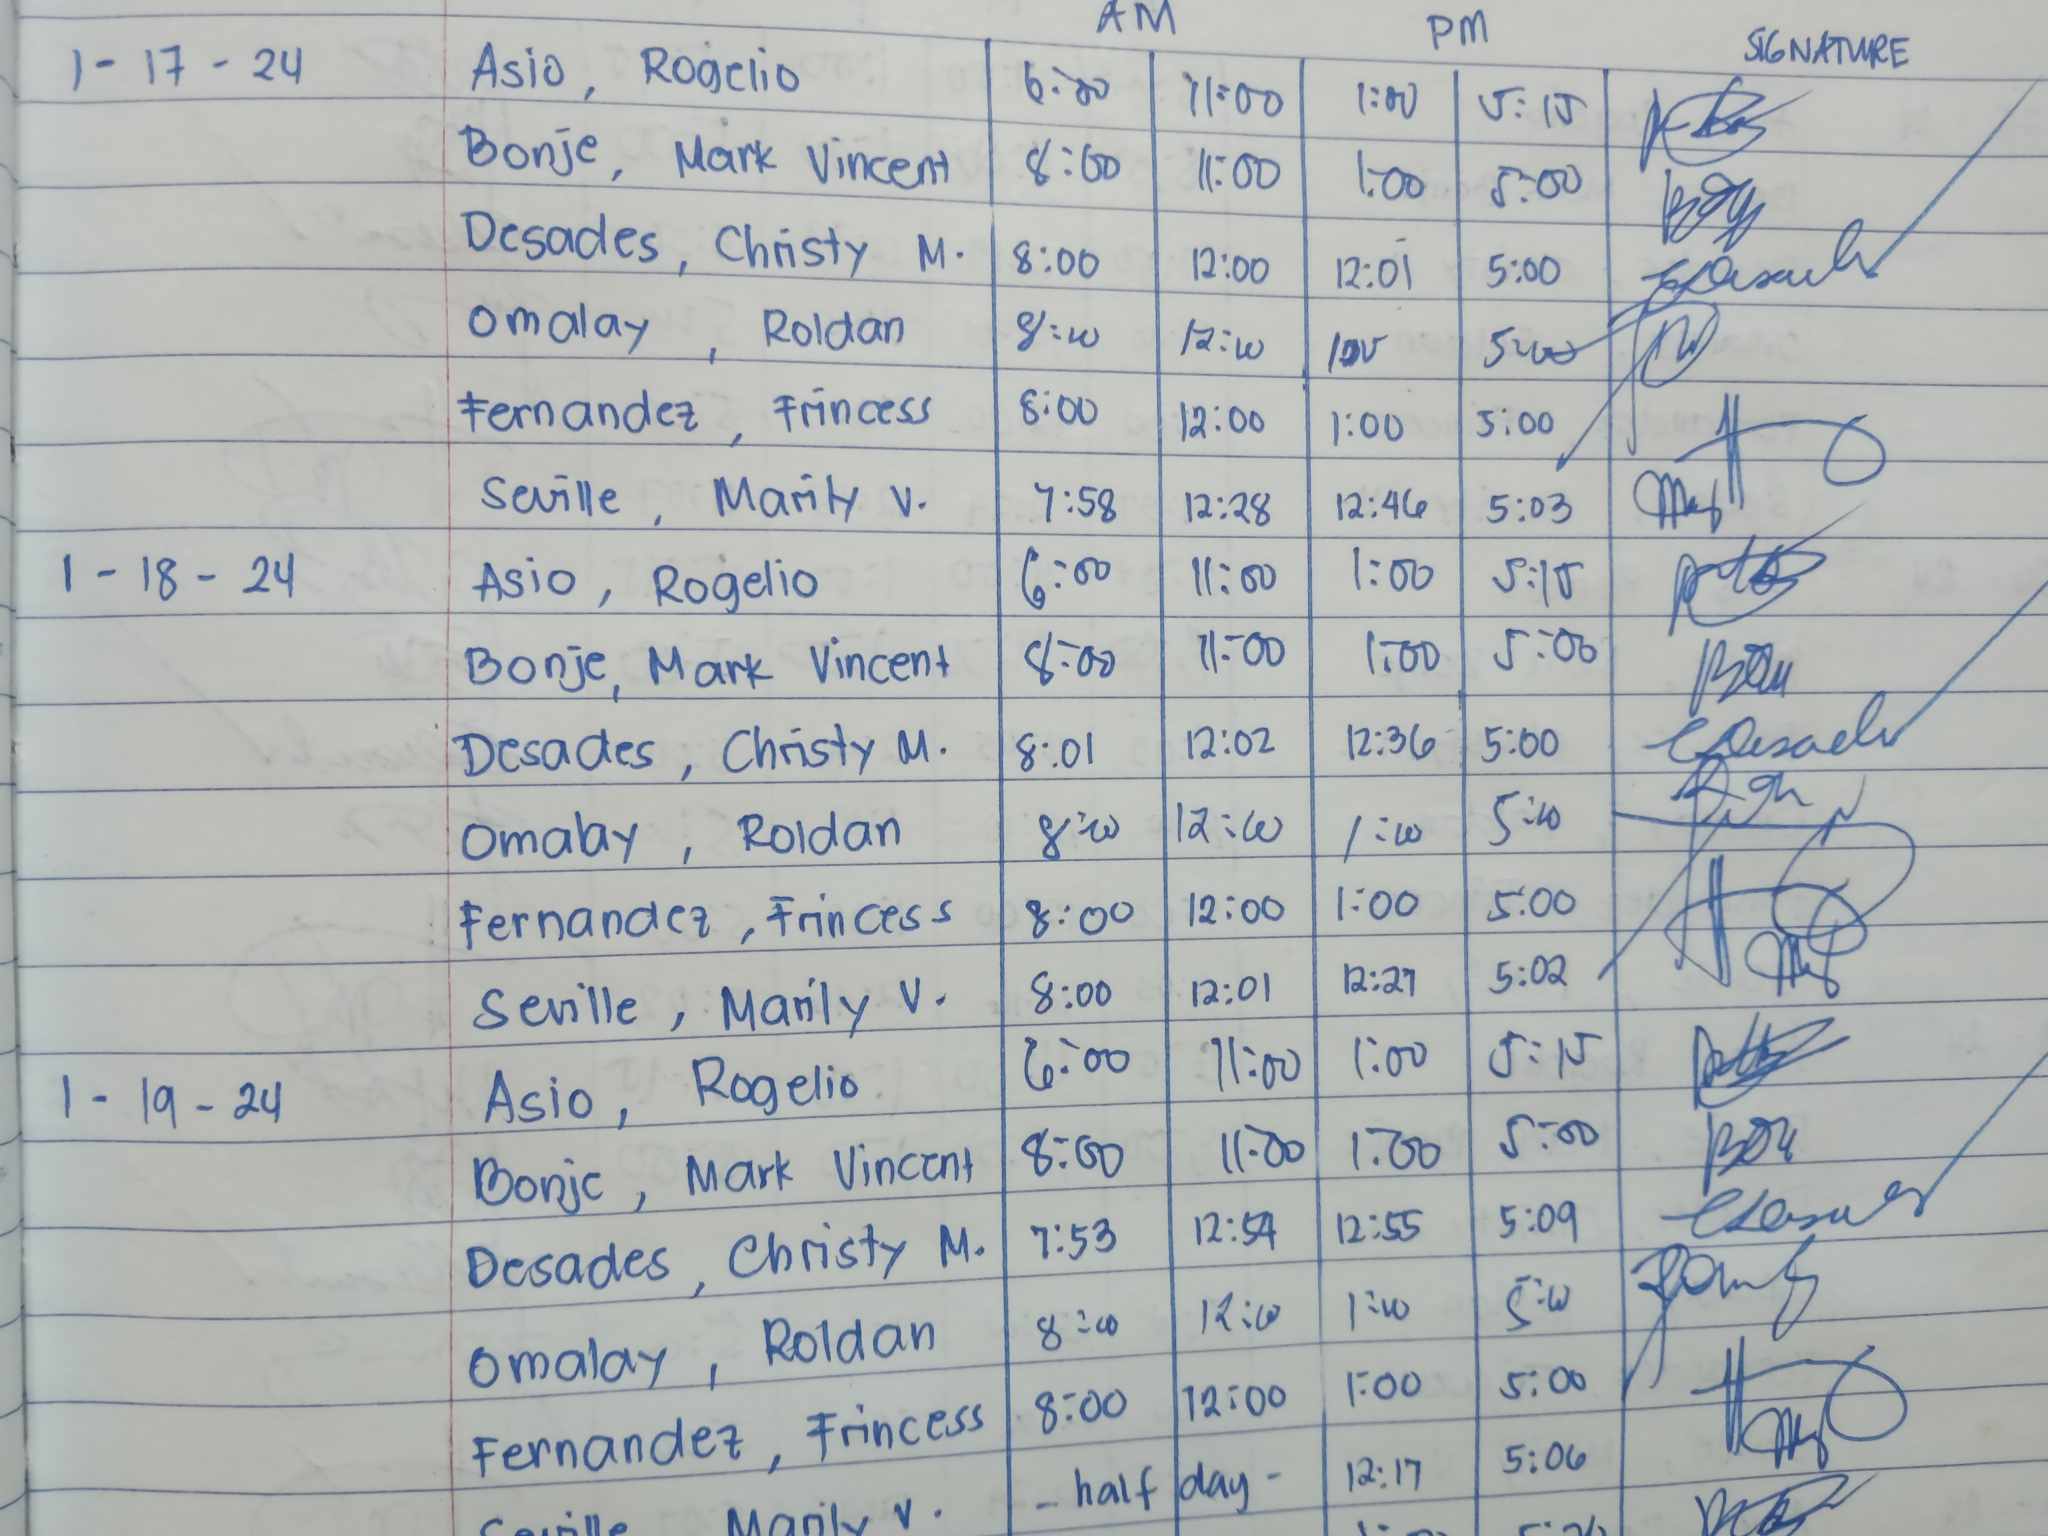 AM PM SIGNATURE
1-17-24 Asio, Rogelio 6:00 11:00 1:00 5:15
Bonje, Mark Vincent 8:00 11:00 1:00 5:00
Desades, Christy M. 8:00 12:00 12:01 5:00
Omalay, Roldan 8:00 12:00 5:00
Fernandez, Frincess 8:00 12:00 1:00 5:00
Seville, Marily V. 7:58 12:28 12:46 5:03
1-18-24 Asio, Rogelio 6:00 11:00 1:00 5:15
Bonje, Mark Vincent 8:00 11:00 1:00 5:00
Desades, Christy M. 8:01 12:02 12:36 5:00
Omalay, Roldan 8:00 12:00 1:00 5:00
Fernandez, Frincess 8:00 12:00 1:00 5:00
Seville, Marily V. 8:00 12:01 12:27 5:02
1-19-24 Asio, Rogelio 6:00 11:00 1:00 5:15
Bonje, Mark Vincent 8:00 11:00 1:00 5:00
Desades, Christy M. 7:53 12:54 12:55 5:09
Omalay, Roldan 8:00 12:00 1:00 5:00
Fernandez, Frincess 8:00 12:00 1:00 5:00
Seville, Marily V. - half day - 12:17 5:06